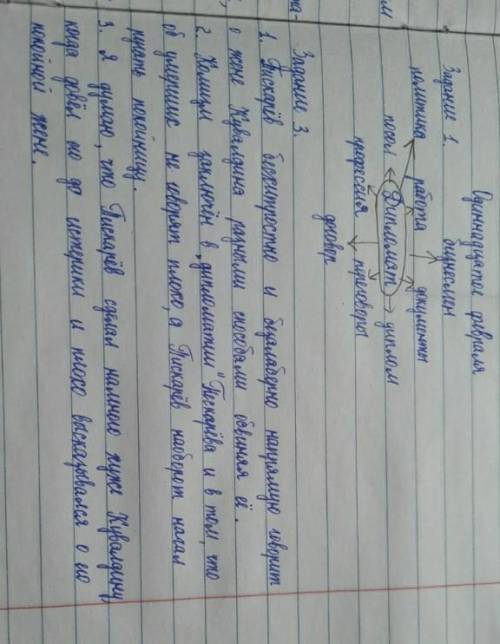 Одиннадцатое февраля
Задание 1.
бизнесмен
политика работа документы
посол Дипломат диплом
профессия переговоры
договор
Задание 3.
1. Пискарёв бесхитростно и безалаберно напрямую говорит
о жене Кувалдина разными способами обвиняя её.
2. Комизм заключён в "дипломатии" Пискарёва и в том, что
об умерших не говорят плохо, а Пискарёв наоборот начал
покойницу.
3. Я думаю, что Пискарёв сделал намного хуже Кувалдину,
когда довёл его до истерики и плохо высказывался о его
покойной жене.